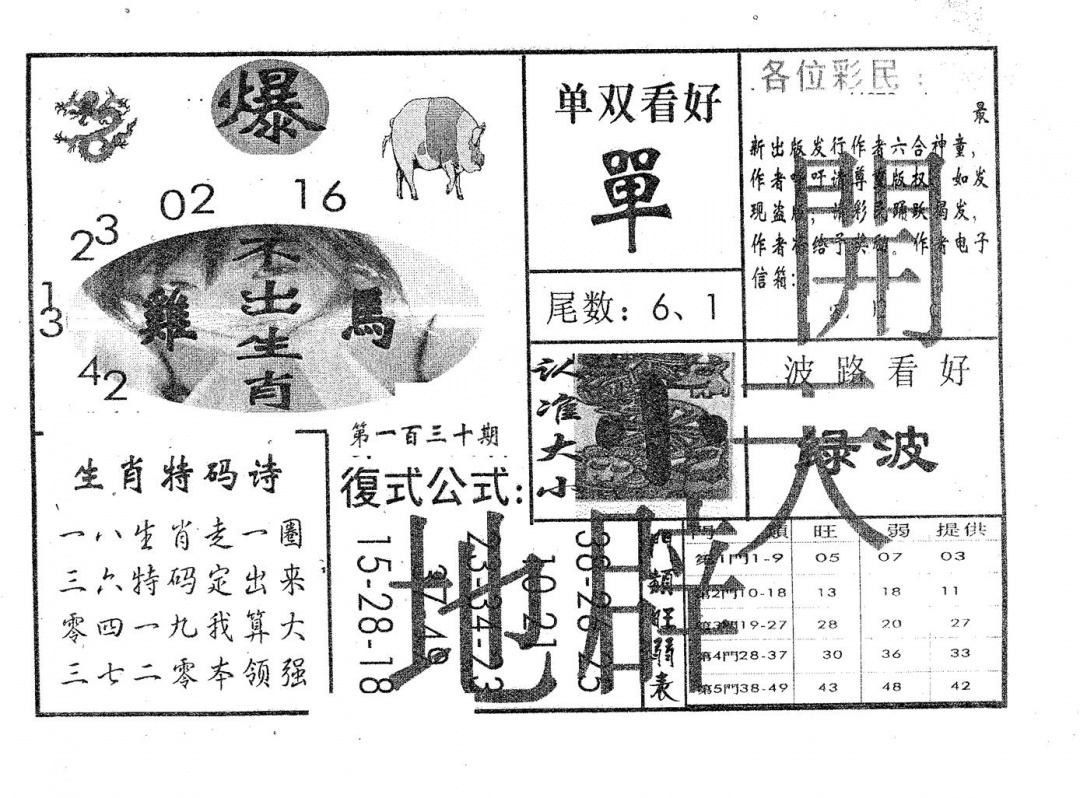 爆
02 16
23
13
42
不出生肖
雞 馬
单双看好
單
尾数：6、1
各位彩民：
最
新出版发行作者六合神童，
作者呼吁请尊重版权，如发
现盗版，请彩民踊跃揭发，
作者将给予奖励。作者电子
信箱：
開
波路看好
绿波
认准大小
天
第一百三十期
復式公式：
15-28-18
37-49
23-34-23
10-21
38-26-25
地
旺
生肖特码诗
一八生肖走一圈
三六特码定出来
零四一九我算大
三七二零本领强
門類旺弱表
門 類 旺 弱 提供
第1門1-9 05 07 03
第2門10-18 13 18 11
第3門19-27 28 20 27
第4門28-37 30 36 33
第5門38-49 43 48 42